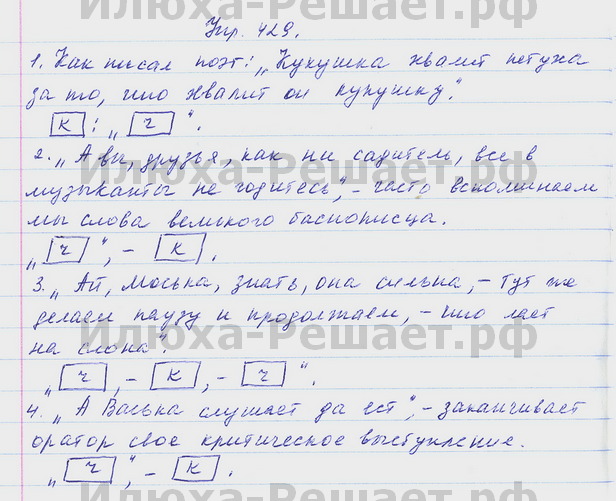 Илюха-Решает.рф
Упр. 429.
1. Как писал поэт: „Кукушка хвалит петуха
за то, что хвалит он кукушку“.
К : „ Ч “.
2. „А вы, друзья, как ни садитель, все в
музыканты не годитесь“, – часто вспоминаем
мы слова великого баснописца.
„ Ч “, – К .
3. „Ай, Моська, знать, она сильна, – тут же
делаем паузу и продолжаем, – что лает
на слона“.
„ Ч , – К , – Ч “.
4. „А Васька слушает да ест“, – заканчивает
оратор свое критическое выступление.
„ Ч “, – К .
Илюха-Решает.рф
Илюха-Решает.рф
Илюха-Решает.рф